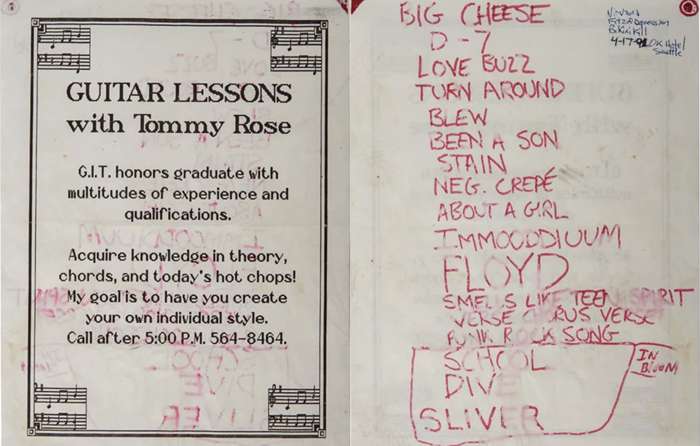 GUITAR LESSONS
with Tommy Rose
G.I.T. honors graduate with
multitudes of experience and
qualifications.
Acquire knowledge in theory,
chords, and today's hot chops!
My goal is to have you create
your own individual style.
Call after 5:00 P.M. 564-8464.
BIG CHEESE
D-7
LOVE BUZZ
TURN AROUND
BLEW
BEEN A SON
STAIN
NEG. CREPÉ
ABOUT A GIRL
IMMOODDIUUM
FLOYD
SMELLS LIKE TEEN SPIRIT
VERSE CHORUS VERSE
PUNK ROCK SONG
SCHOOL
DIVE
SLIVER
IN
BLOOM
Nirvana
Fitz of Depression
Bikini Kill
4-17-91 OK Hotel
Seattle